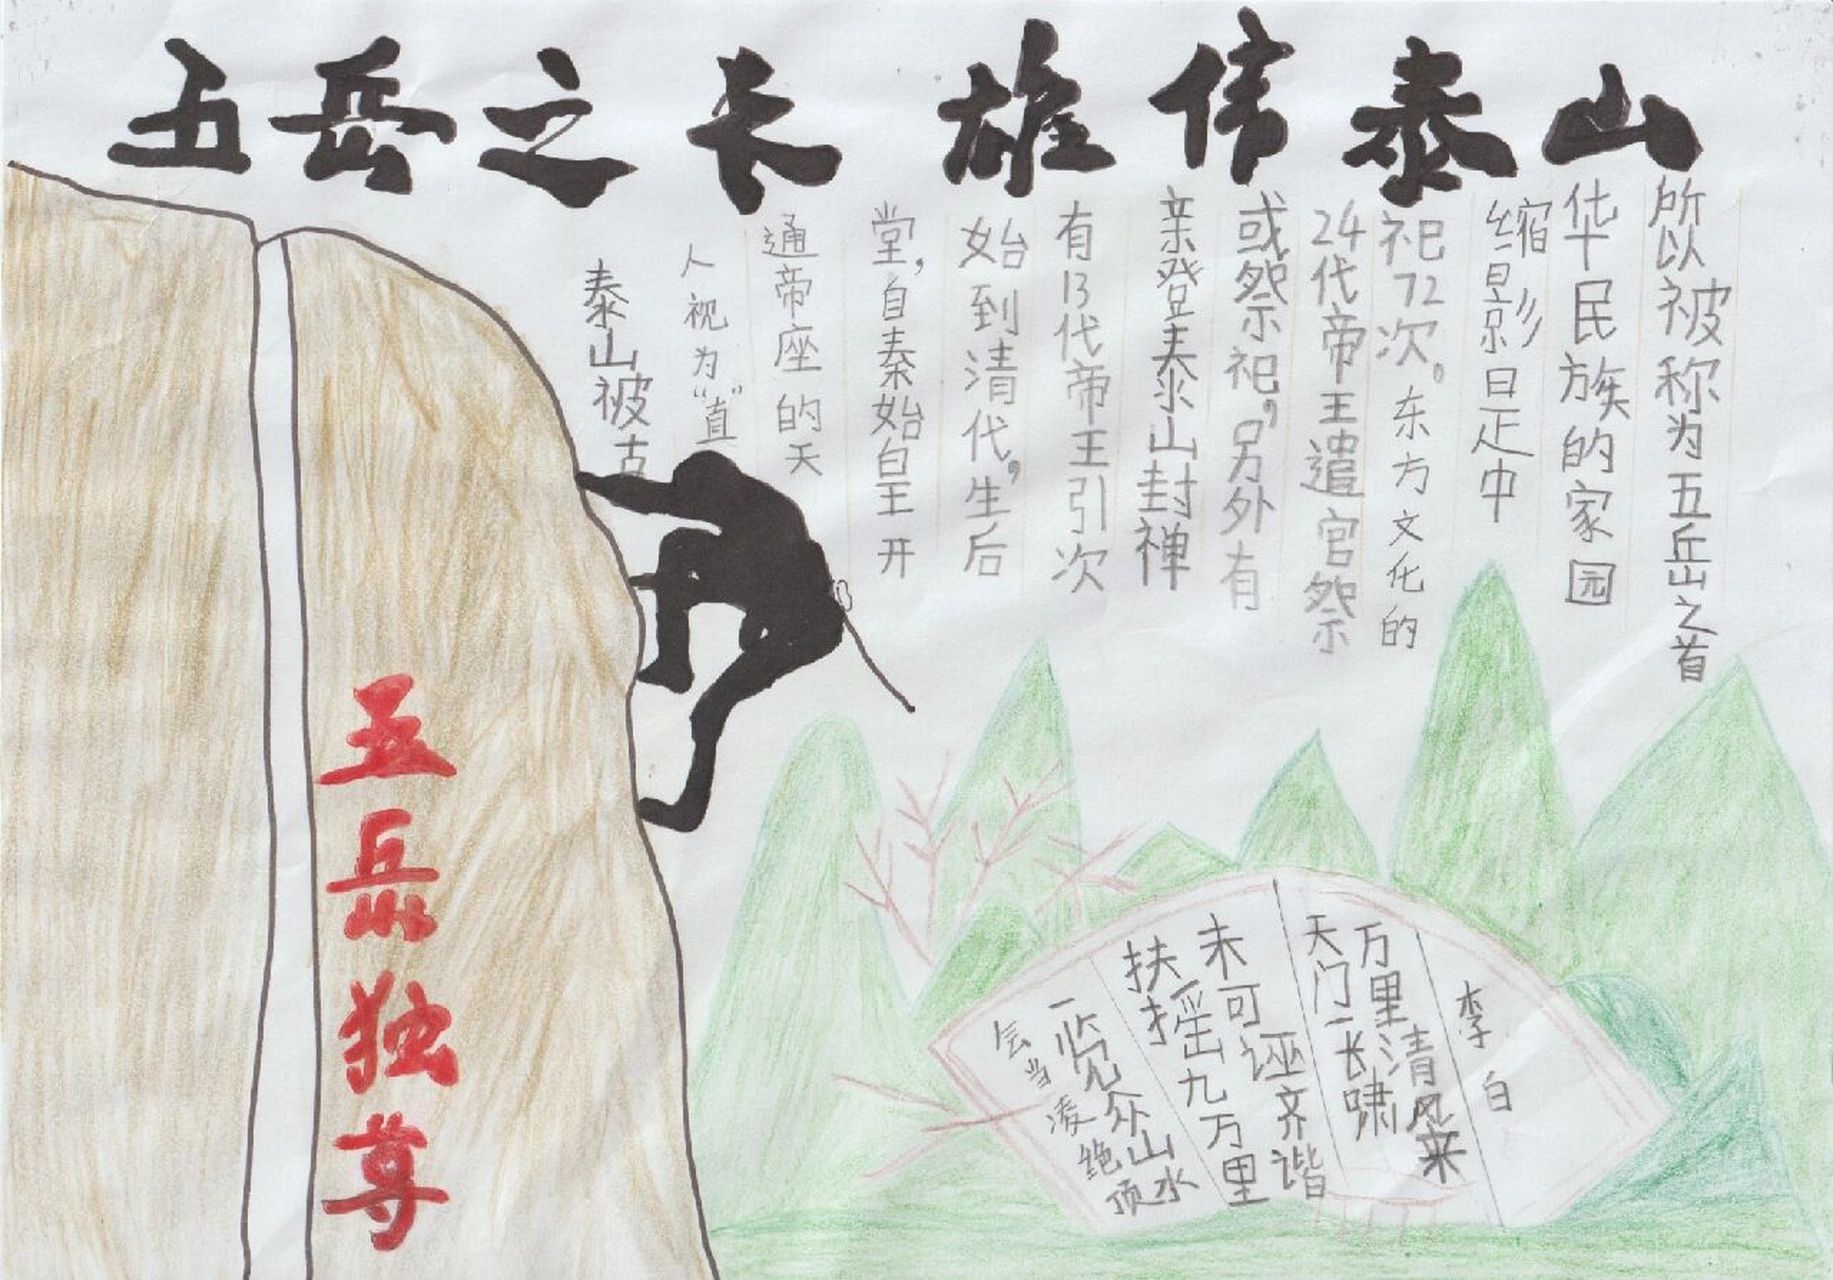 五岳之长 雄伟泰山
泰山被古
人视为“直”
通帝座的天
堂，自秦始皇开
始到清代，生后
有13代帝王引次
亲登泰山封禅
或祭祀，另外有
24代帝王遣官祭
祀72次。东方文化的
缩影是中
华民族的家园
所以被称为五岳之首
五岳独尊
会当凌绝顶
一览众山水
扶摇九万里
未可诬齐谐
天门一长啸
万里清风来
李白